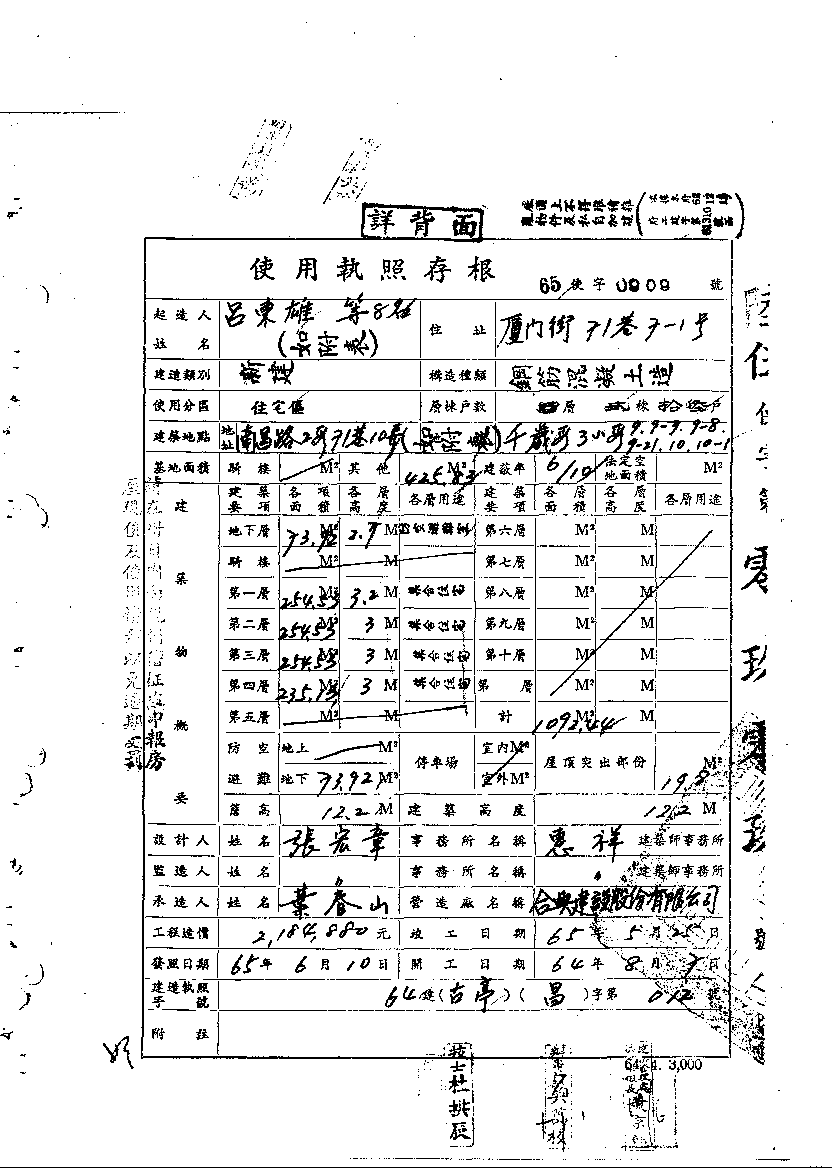 詳背面
使用執照存根
65使字0909號
起造人姓名 呂東雄 等8名 (如附表) 住址 廈门街71巷7-1号
建造類別 新建 構造種類 鋼筋混凝土造
使用分區 住宅區 層棟戶數 層 棟 戶
建築地點 地址 南昌路2段71巷10號(如附表)千歲段3小段9.9-9.9-8.9-21.10.10-1
基地面積 騎樓 M² 其他 425.83 M² 建蔽率 6/10 法定空地面積 M²
建築物概要
建築要項 各項面積 各層高度 各層用途 建築要項 各層面積 各層高度 各層用途
地下層 73.92 M² 2.7 M 第六層 M² M
騎樓 M² M 第七層 M² M
第一層 254.53 M² 3.2 M 集合住宅 第八層 M² M
第二層 254.53 M² 3 M 集合住宅 第九層 M² M
第三層 254.53 M² 3 M 集合住宅 第十層 M² M
第四層 235.13 M² 3 M 集合住宅 第 層 M² M
第五層 M² M 計 1092.44 M² M
防空避難 地上 M² 停車場 室內M² 屋頂突出部份 M²
地下 73.92 M² 室外M² 19.8
簷高 12.2 M 建築高度 12.2 M
設計人 姓名 張宏章 事務所名稱 惠祥 建築師事務所
監造人 姓名 〃 事務所名稱 〃 建築師事務所
承造人 姓名 葉春山 營造廠名稱 合興建設股份有限公司
工程造價 2,184,880元 竣工日期 65年5月25日
發照日期 65年6月10日 開工日期 64年8月7日
建造執照字號 64建(古亭)(昌)字第012號
附註
64. 4. 3,000
技士杜拱辰